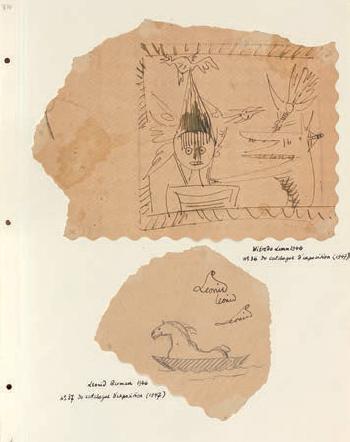 Wifredo Lam 1946
nº 36 du catalogue d'exposition (1947)
Leonid
Leonid
Leonid
Leonid Berman 1946
nº 37 du catalogue d'exposition (1947)